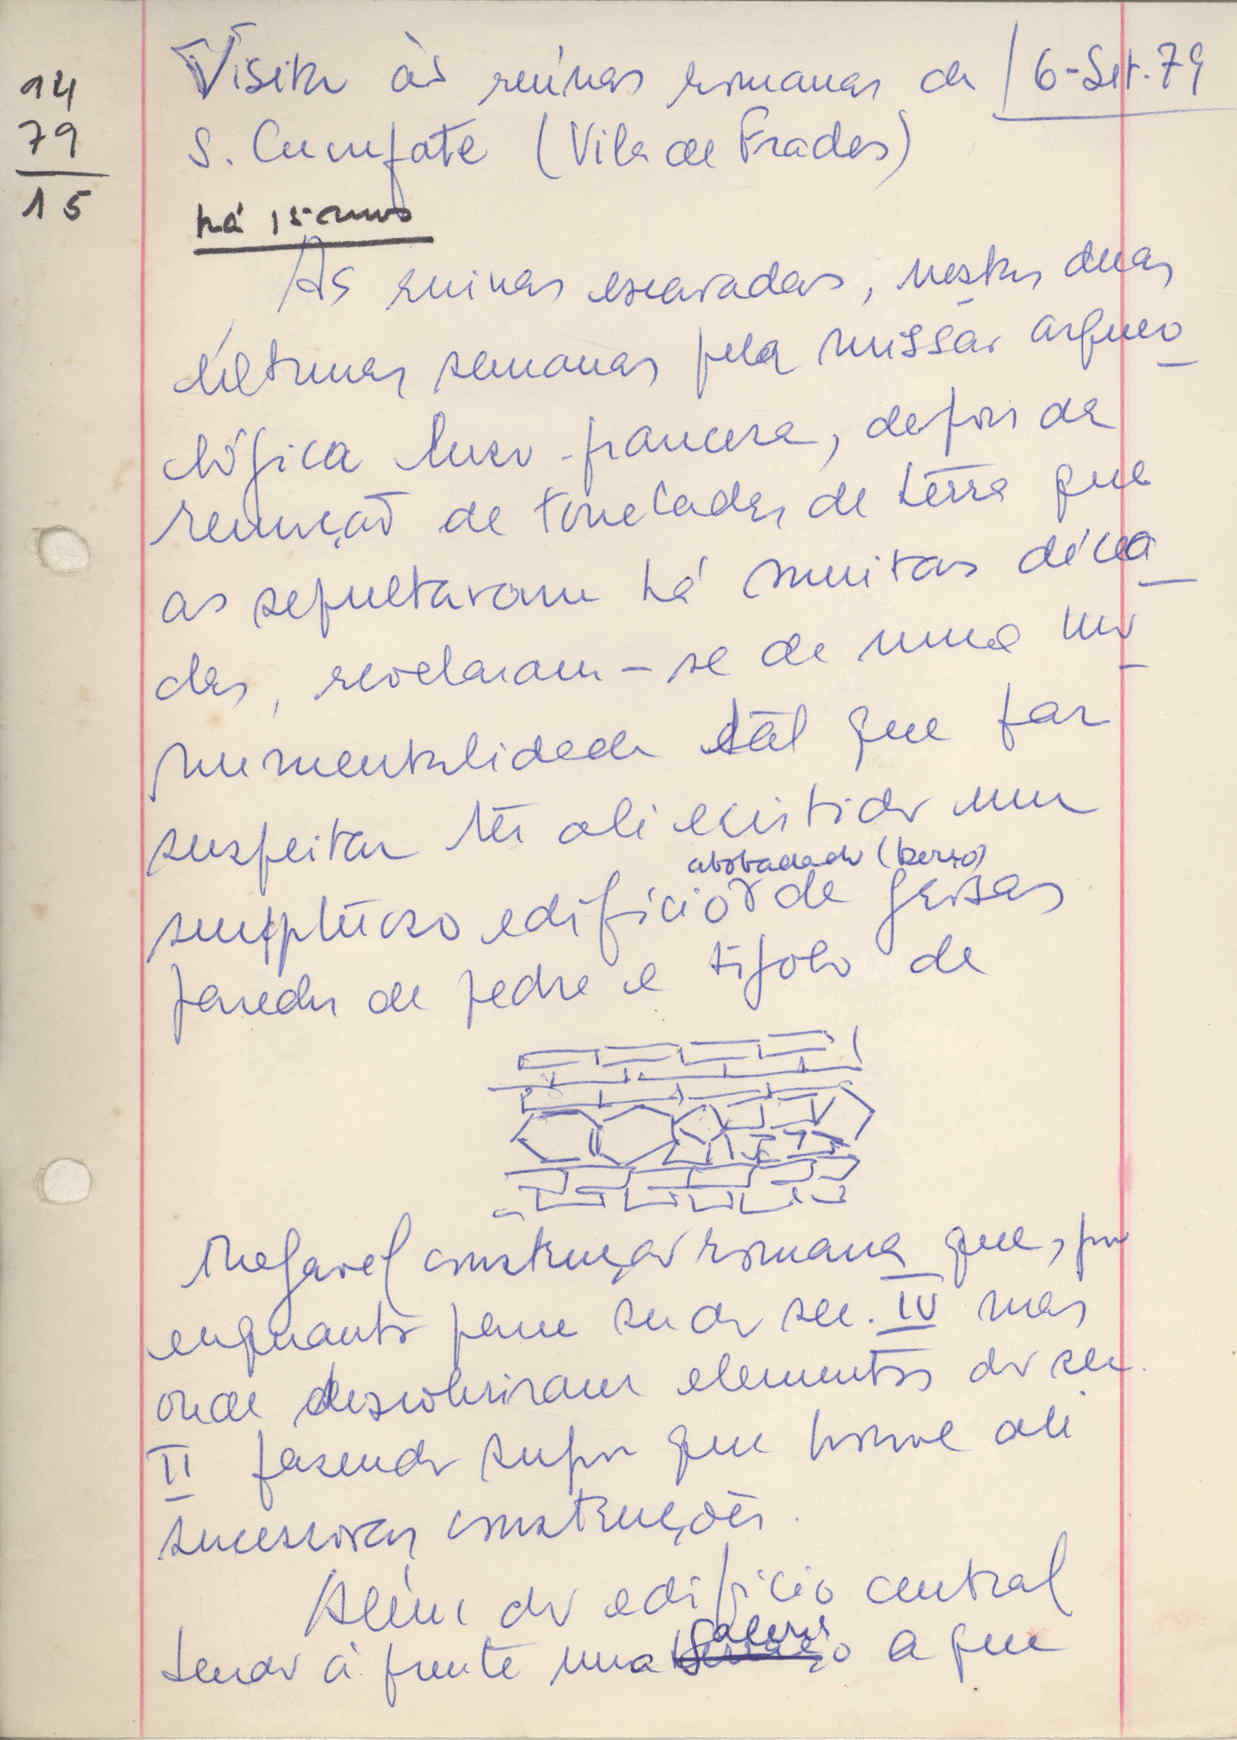 14
79
15
Visita às ruínas romanas de 6-Set.79
S. Cucufate (Vila de Frades)
há 15 anos
As ruinas escavadas, nestas duas
últimas semanas pela missão arqueo
lógica luso-francesa, depois da
remoção de toneladas de terra que
as sepultavam há muitas déca
das, revelaram-se de uma mo
numentalidade tal que faz
suspeitar ter ali existido um
abobadado (berço)
sumptuoso edifício de grossas
paredes de pedra e tijolo de
construção romana que, por
enquanto parece ser do sec. IV mas
onde descobriram elementos do sec.
II fazendo supor que houve ali
sucessivas construções.
Além do edifício central
tendo à frente uma galeria a que